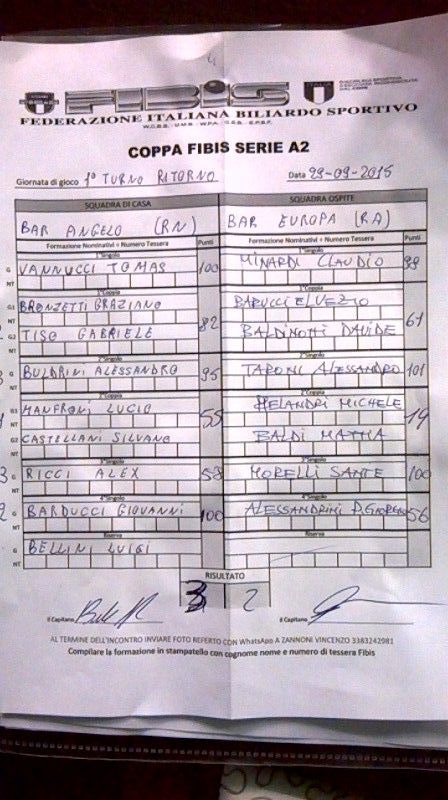 FIBIS
FEDERAZIONE ITALIANA BILIARDO SPORTIVO
COPPA FIBIS SERIE A2
Giornata di gioco 1° TURNO RITORNO Data 29-09-2015
SQUADRA DI CASA SQUADRA OSPITE
BAR ANGELO (RN) BAR EUROPA (RA)
Formazione Nominativi + Numero Tessera Punti Formazione Nominativi + Numero Tessera Punti
1°Singolo 1°Singolo
G VANNUCCI TOMAS 100 MINARDI CLAUDIO 99
NT
1°Coppia 1°Coppia
G1 BRONZETTI GRAZIANO 82 BARUCCI ELVEZIO 61
NT
G2 TISO GABRIELE BALDINOTTI DAVIDE
NT
2°Singolo 2°Singolo
G BULDRINI ALESSANDRO 95 TARONI ALESSANDRO 101
NT
2°Coppia 2°Coppia
G1 MANFRONI LUCIO 55 MELANDRI MICHELE
NT
G2 CASTELLANI SILVANO BALDI MATTIA
NT
3°Singolo 3°Singolo
G RICCI ALEX 58 MORELLI SANTE 100
NT
4°Singolo 4°Singolo
G BARDUCCI GIOVANNI 100 ALESSANDRINI 56
NT
Riserva Riserva
G BELLINI LUIGI
NT
RISULTATO
3 2
Il Capitano Il Capitano
AL TERMINE DELL'INCONTRO INVIARE FOTO REFERTO CON WhatsApp A ZANNONI VINCENZO 3383242981
Compilare la formazione in stampatello con cognome nome e numero di tessera Fibis